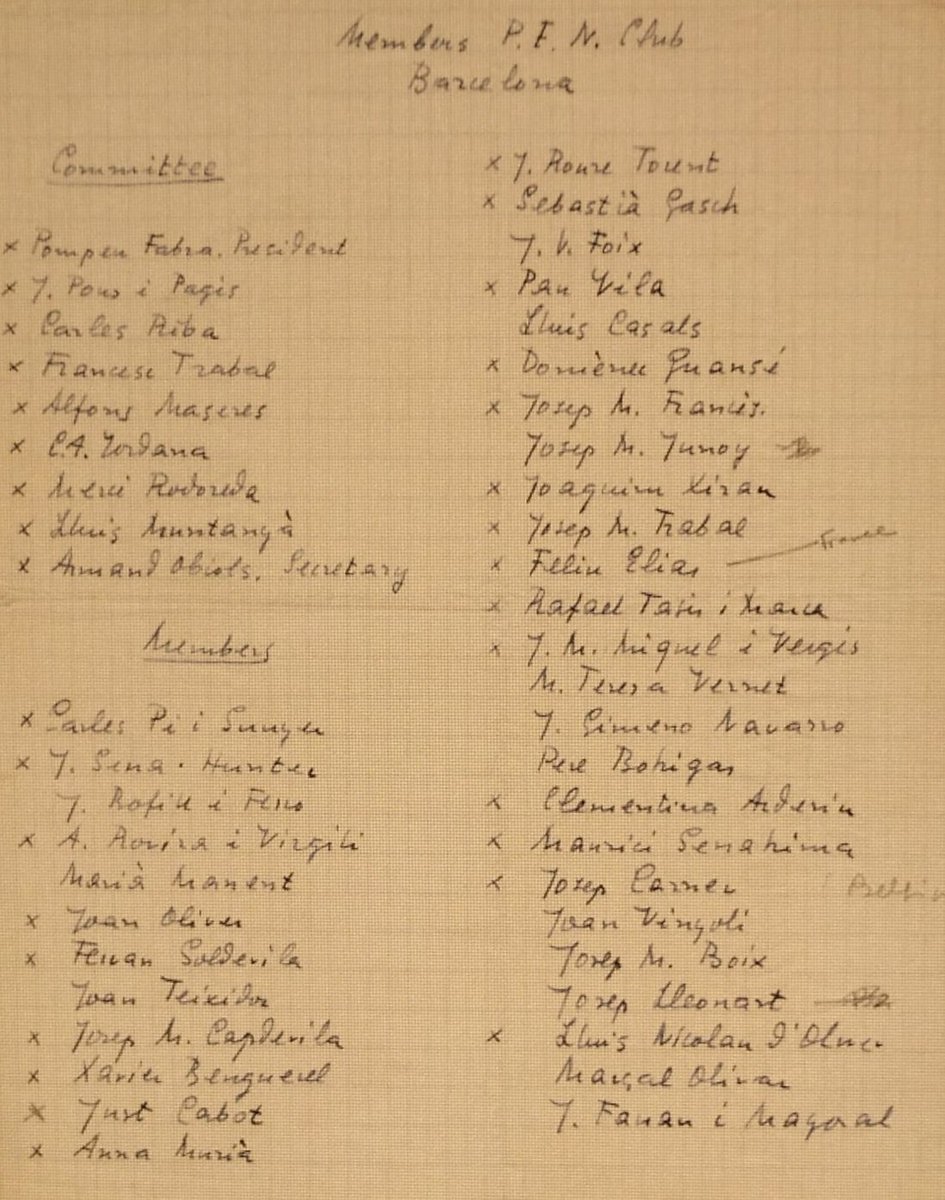 Members P.E.N. Club
Barcelona
Committee
x Pompeu Fabra. President
x J. Pous i Pagès
x Carles Riba
x Francesc Trabal
x Alfons Maseres
x C.A. Jordana
x Mercè Rodoreda
x Lluis Muntanyà
x Armand Obiols, Secretary
Members
x Carles Pi i Sunyer
x J. Serra-Hunter
J. Rofill i Ferro
x A. Rovira i Virgili
Marià Manent
x Joan Oliver
x Ferran Soldevila
Joan Teixidor
x Josep M. Capdevila
x Xavier Benguerel
x Just Cabot
x Anna Murià
x J. Roure Torent
x Sebastià Gasch
J. V. Foix
x Pau Vila
Lluis Casals
x Domènec Guansé
x Josep M. Francès.
Josep M. Junoy
x Joaquim Xirau
x Josep M. Trabal
x Feliu Elias
x Rafael Tasis i Marca
x J. M. Miquel i Vergés
M. Teresa Vernet
J. Gimeno Navarro
Pere Bohigas
x Clementina Arderiu
x Maurici Serrahima
x Josep Carner
Joan Vinyoli
Josep M. Boix
Josep Lleonart
x Lluis Nicolau d'Olwer
Marçal Olivar
J. Farran i Mayoral